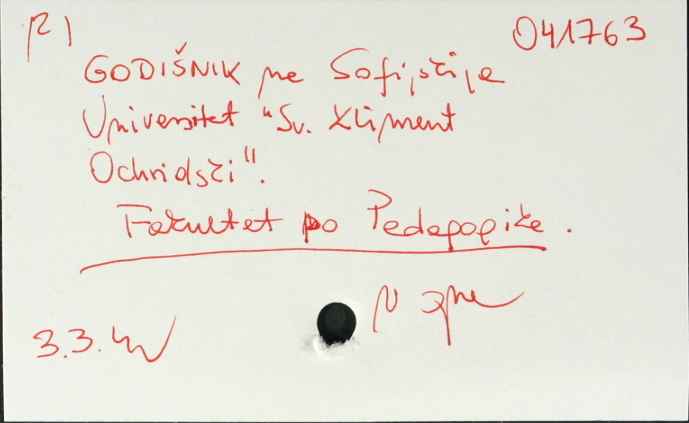 041763
GODIŠNIK na Sofijskija
Universitet "Sv. Kliment
Ochridski".
Fakultet po Pedagogika.
N
3.3.